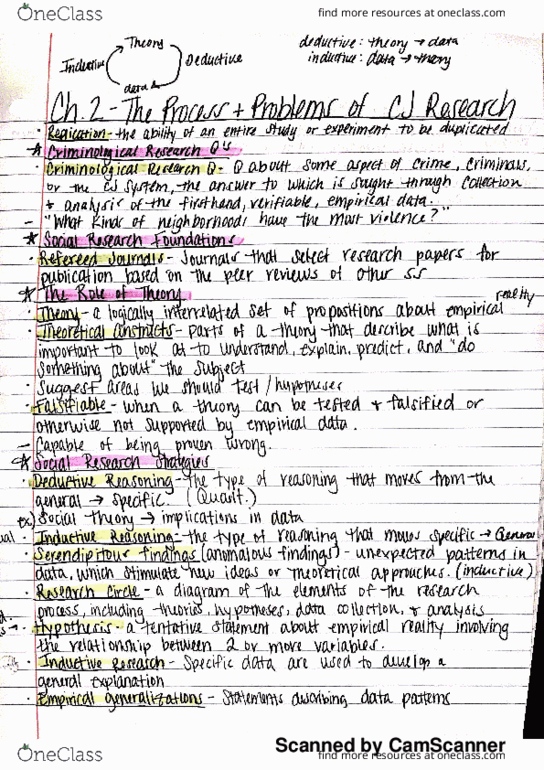 OneClass
find more resources at oneclass.com
Theory
Inductive
Deductive
data
deductive: theory → data
inductive: data → theory
Ch. 2 - The Process + Problems of CJ Research
· Replication - the ability of an entire study or experiment to be duplicated
* Criminological Research Q's
· Criminological Research Q - Q about some aspect of crime, criminals,
or the CJ system, the answer to which is sought through collection
+ analysis of the firsthand, verifiable, empirical data.
- "What kinds of neighborhoods have the most violence?"
* Social Research Foundations
· Refereed Journals - Journals that select research papers for
publication based on the peer reviews of other SS
* The Role of Theory
· Theory - a logically interrelated set of propositions about empirical reality
· Theoretical constructs - parts of a theory that describe what is
important to look at to understand, explain, predict, and "do
something about" the subject
· Suggest areas we should test / hypotheses
· Falsifiable - when a theory can be tested + falsified or
otherwise not supported by empirical data.
- Capable of being proven wrong.
* Social Research Strategies
· Deductive Reasoning - the type of reasoning that moves from the
general → specific. (Quant.)
ex) Social theory → implications in data
· Inductive Reasoning - the type of reasoning that moves specific → General
· Serendipitous findings (anomalous findings) - unexpected patterns in
data, which stimulate new ideas or theoretical approaches. (inductive)
· Research Circle - a diagram of the elements of the research
process, including theories, hypotheses, data collection, + analysis
· Hypothesis - a tentative statement about empirical reality involving
the relationship between 2 or more variables.
· Inductive Research - Specific data are used to develop a
general explanation
· Empirical generalizations - Statements describing data patterns
Scanned by CamScanner
OneClass
find more resources at oneclass.com